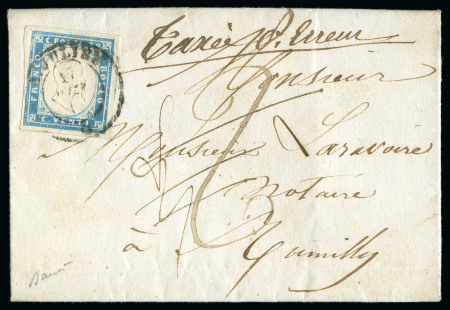 Taxée p. Erreur
Monsieur
Monsieur Laravoire
notaire
à Rumilly
FRANCO BOLLO
C. VENTI